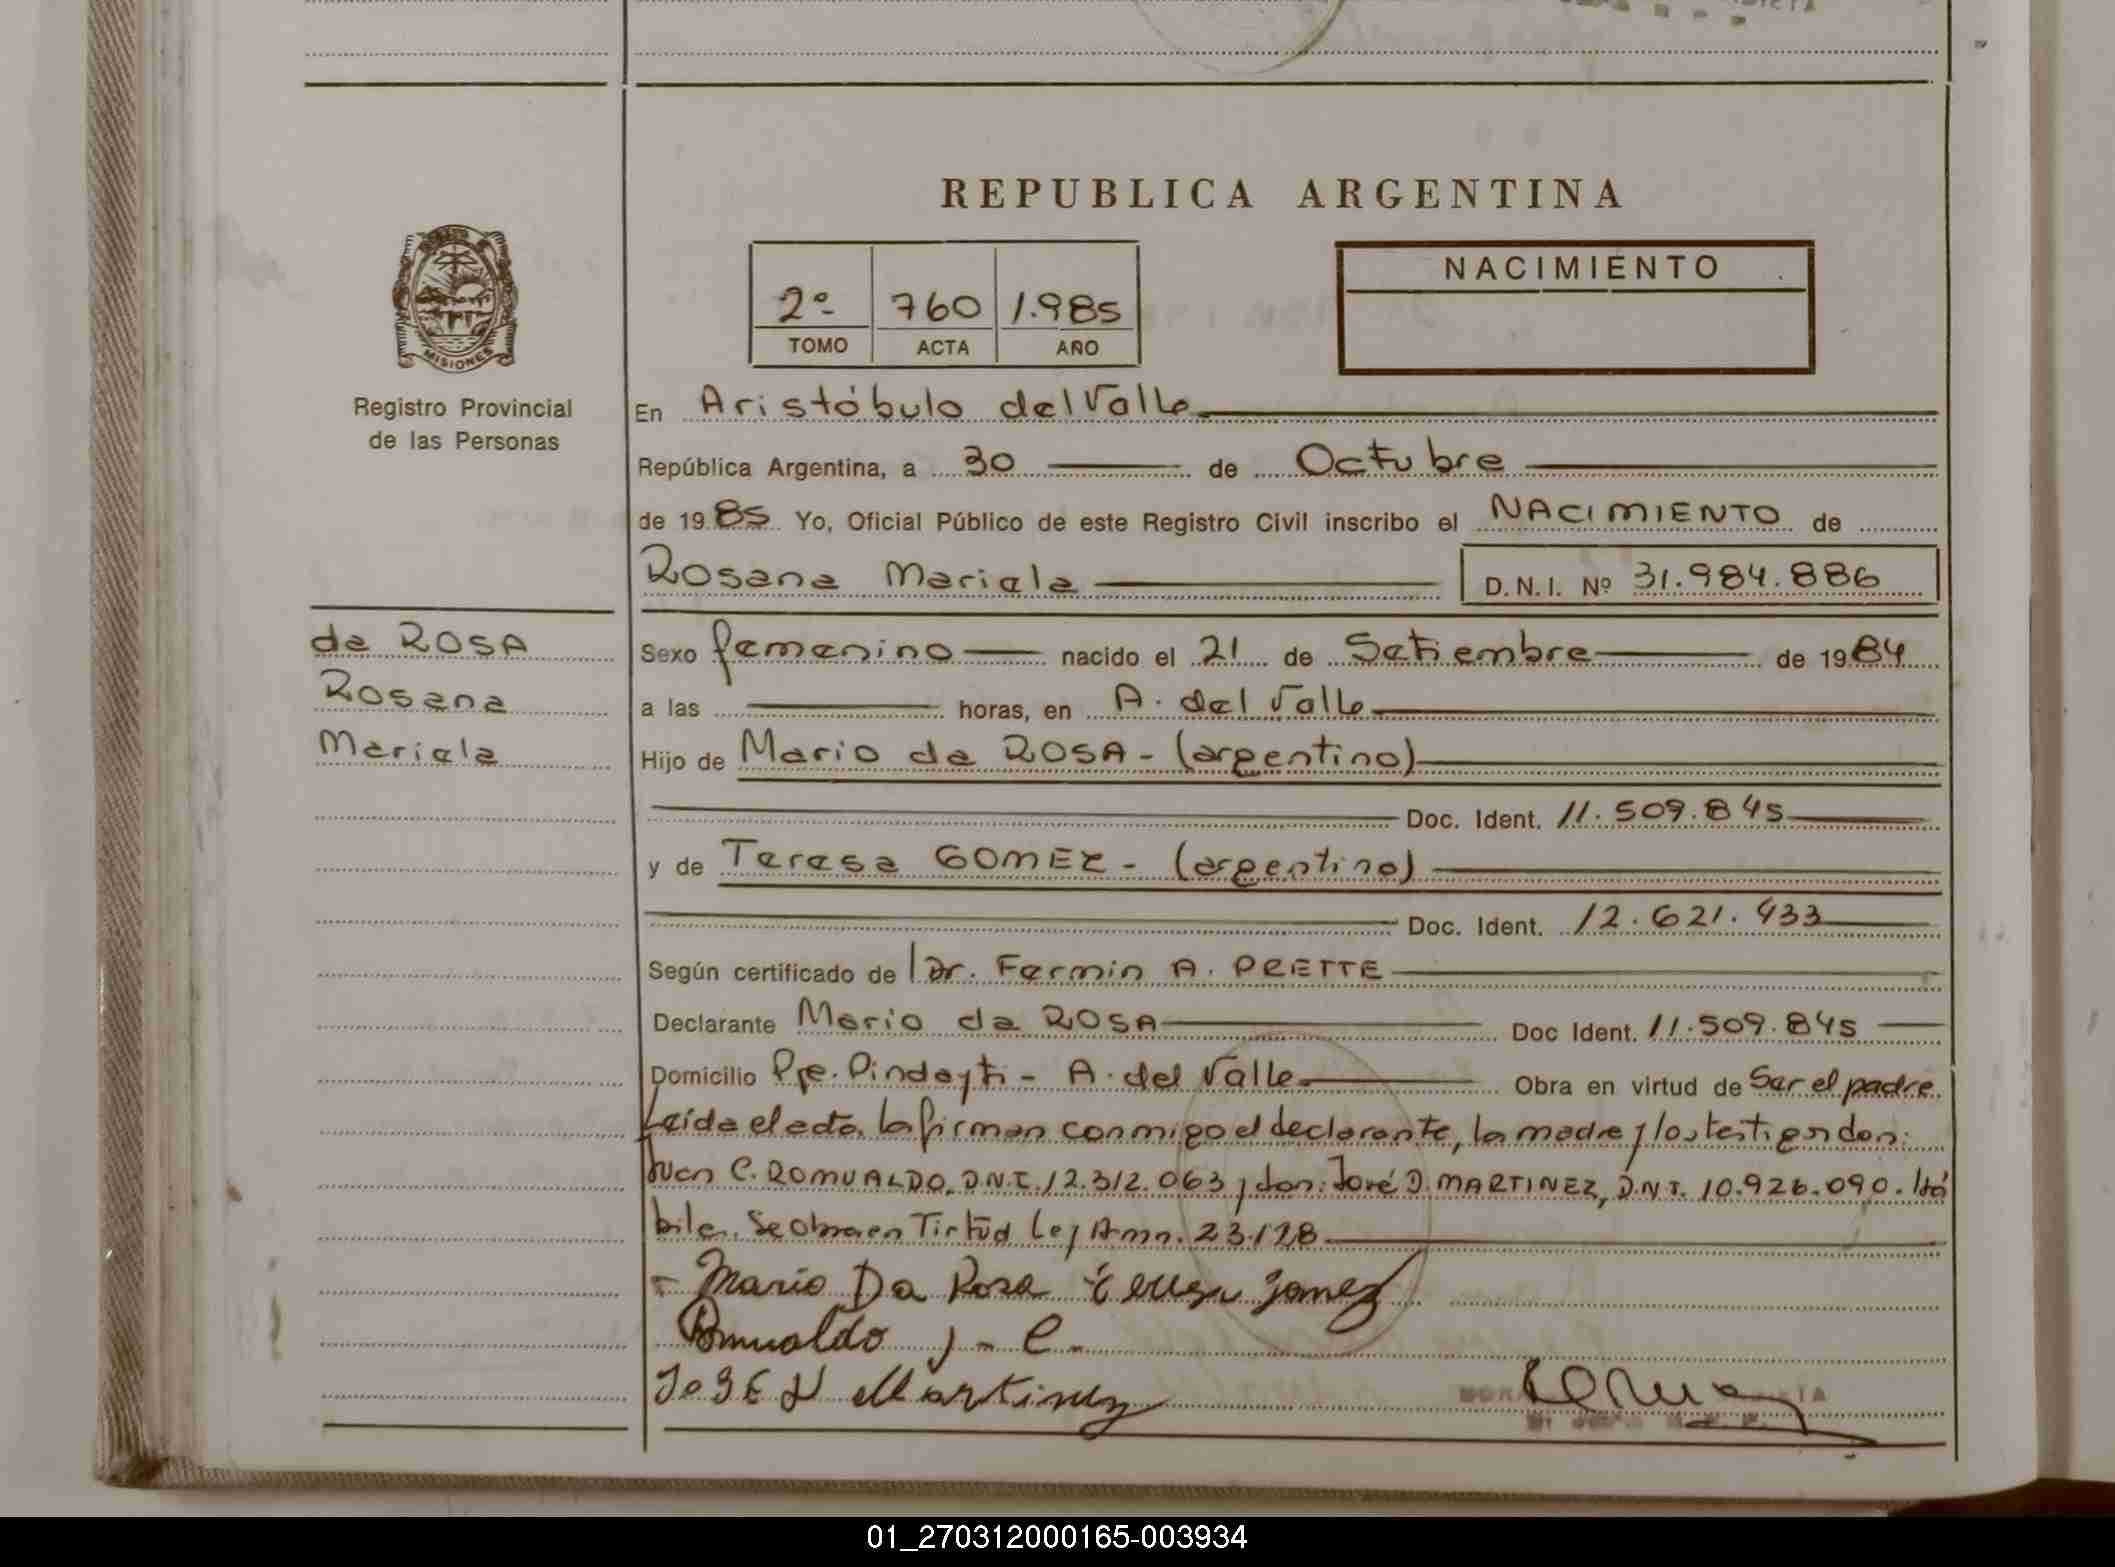 REPUBLICA ARGENTINA
2º
760
1.985
TOMO
ACTA
AÑO
NACIMIENTO
MISIONES
Registro Provincial
de las Personas
En Aristóbulo del Valle
República Argentina, a 30 de Octubre
de 1985 Yo, Oficial Público de este Registro Civil inscribo el NACIMIENTO de
Rosana Mariela
D.N.I. Nº 31.984.886
da ROSA
Rosana
Mariela
Sexo femenino nacido el 21 de Setiembre de 1984
a las horas, en A. del Valle
Hijo de Mario da ROSA - (argentino)
Doc. Ident. 11.509.845
y de Teresa GOMEZ - (argentino)
Doc. Ident. 12.621.433
Según certificado de Dr. Fermin A. PRETTE
Declarante Mario da ROSA Doc Ident. 11.509.845
Domicilio Pje. Pindayti - A. del Valle Obra en virtud de Ser el padre
Leída el acta, la firman conmigo el declarante, la madre y los testigos don:
Juan C. ROMUALDO, D.N.I. 12.312.063 y don: José D. MARTINEZ, D.N.I. 10.926.090. Há
biles. Se obra en Tirtud Ley Amn. 23.128
- Mario Da Rosa teresa gomez
Romualdo J - C.
JoSE D Martinez
01_270312000165-003934